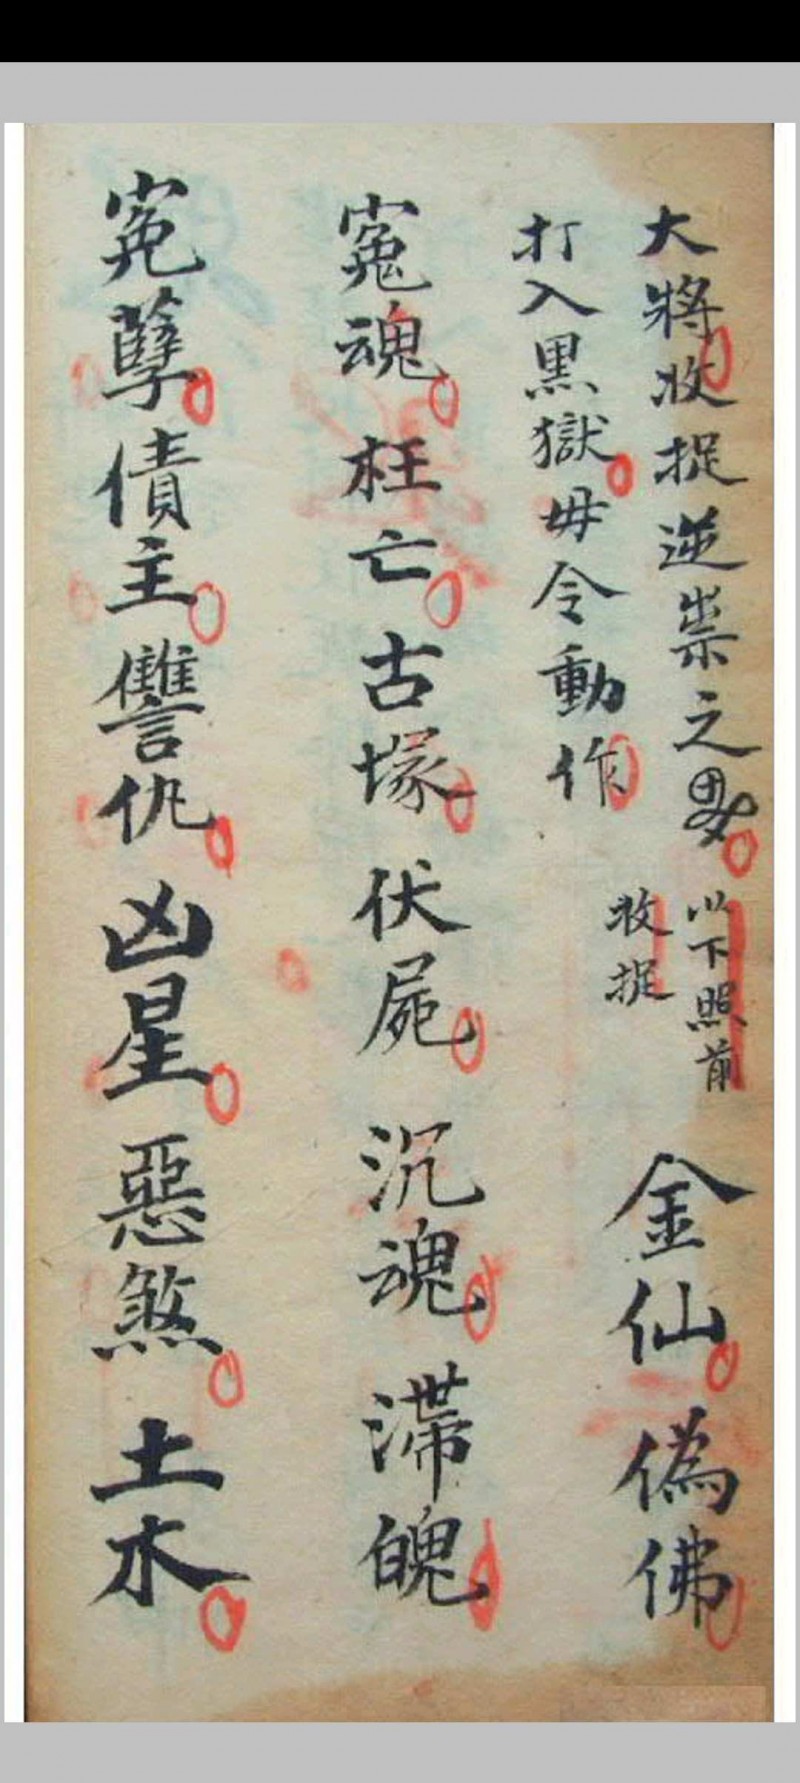 大將收捉逆祟之男女
打入黑獄毋令動作
以下照前
收捉
金仙 偽佛
寃魂 枉亡 古塚 伏屍 沉魂 滯魄
寃孽 債主 讐仇 凶星 惡煞 土木